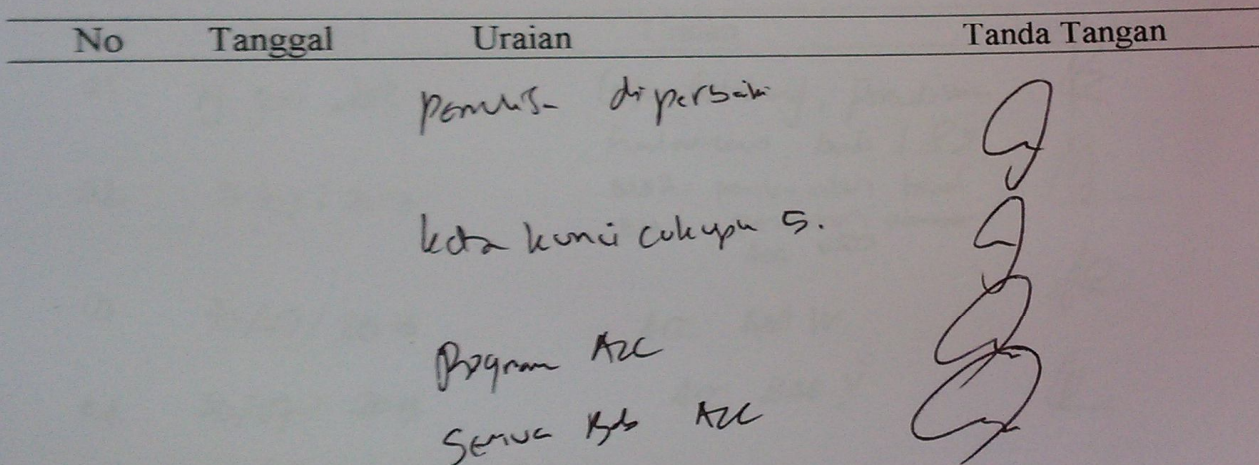 No Tanggal Uraian Tanda Tangan
Penulisan diperbaiki
kata kunci cukup 5.
Program Acc
Semua Bab Acc